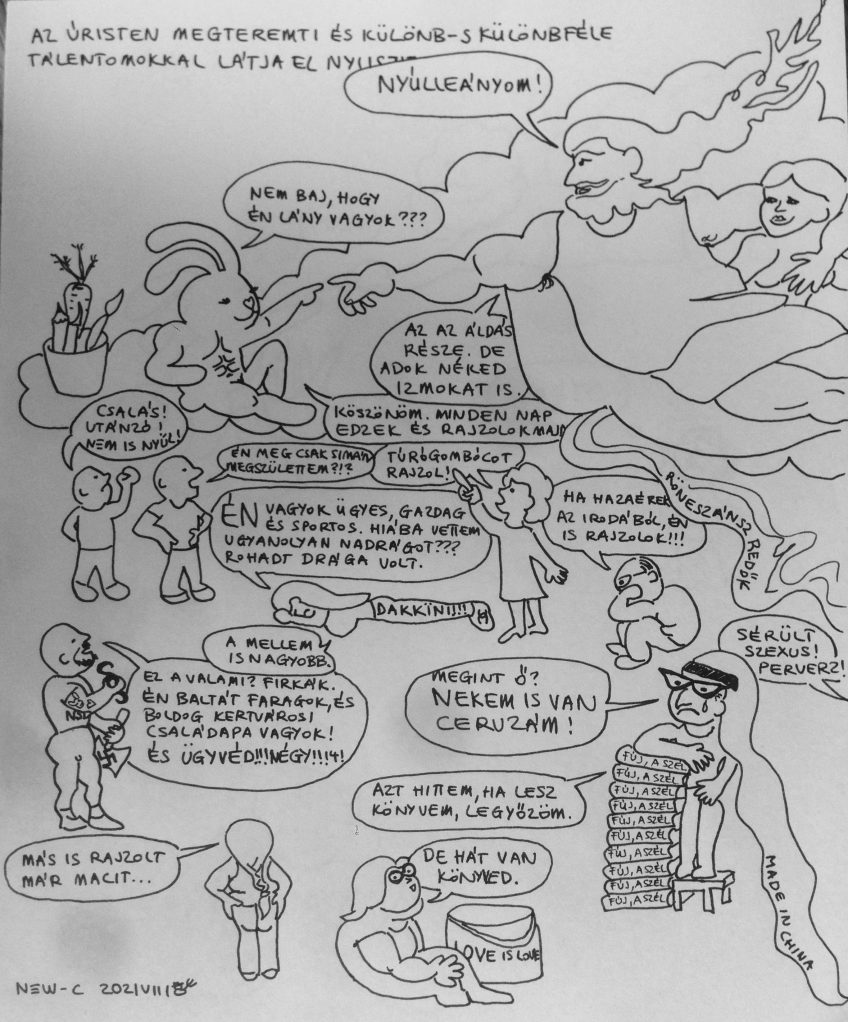 AZ ÚRISTEN MEGTEREMTI ÉS KÜLÖNB-S KÜLÖNBFÉLE
TALENTOMOKKAL LÁTJA EL
NYÚLLEÁNYOM!
NEM BAJ, HOGY
ÉN LÁNY VAGYOK???
AZ AZ ÁLDÁS
RÉSZE. DE
ADOK NÉKED
IZMOKAT IS.
KÖSZÖNÖM. MINDEN NAP
EDZEK ÉS RAJZOLOK MAJD
CSALÁS!
UTÁNZÓ!
NEM IS NYÚL!
ÉN MEG CSAK SIMÁN
MEGSZÜLETTEM?!?
TÚRÓGOMBÓCOT
RAJZOL!
ÉN VAGYOK ÜGYES, GAZDAG
ÉS SPORTOS. HIÁBA VETTEM
UGYANOLYAN NADRÁGOT???
ROHADT DRÁGA VOLT.
HA HAZAÉREK
AZ IRODÁBÓL, ÉN
IS RAJZOLOK!!!
RÖNESZÁNSZ REDŐK
DAKKINI!!!
H
A MELLEM
IS NAGYOBB.
SÉRÜLT
SZEXUS!
PERVERZ!
EZ A VALAMI? FIRKÁK.
ÉN BALTÁT FARAGOK, ÉS
BOLDOG KERTVÁROSI
CSALÁDAPA VAGYOK!
ÉS ÜGYVÉD!!!NÉGY!!!4!
MEGINT Ő?
NEKEM IS VAN
CERUZÁM!
AZT HITTEM, HA LESZ
KÖNYVEM, LEGYŐZÖM.
FÚJ, A SZÉL
FÚJ, A SZÉL
FÚJ, A SZÉL
FÚJ, A SZÉL
FÚJ, A SZÉL
FÚJ, A SZÉL
FÚJ, A SZÉL
FÚJ, A SZÉL
FÚJ, A SZÉL
FÚJ, A SZÉL
MÁS IS RAJZOLT
MÁR MACIT...
DE HÁT VAN
KÖNYVED.
LOVE IS LOVE
MADE IN CHINA
NEW-C 2021VIII